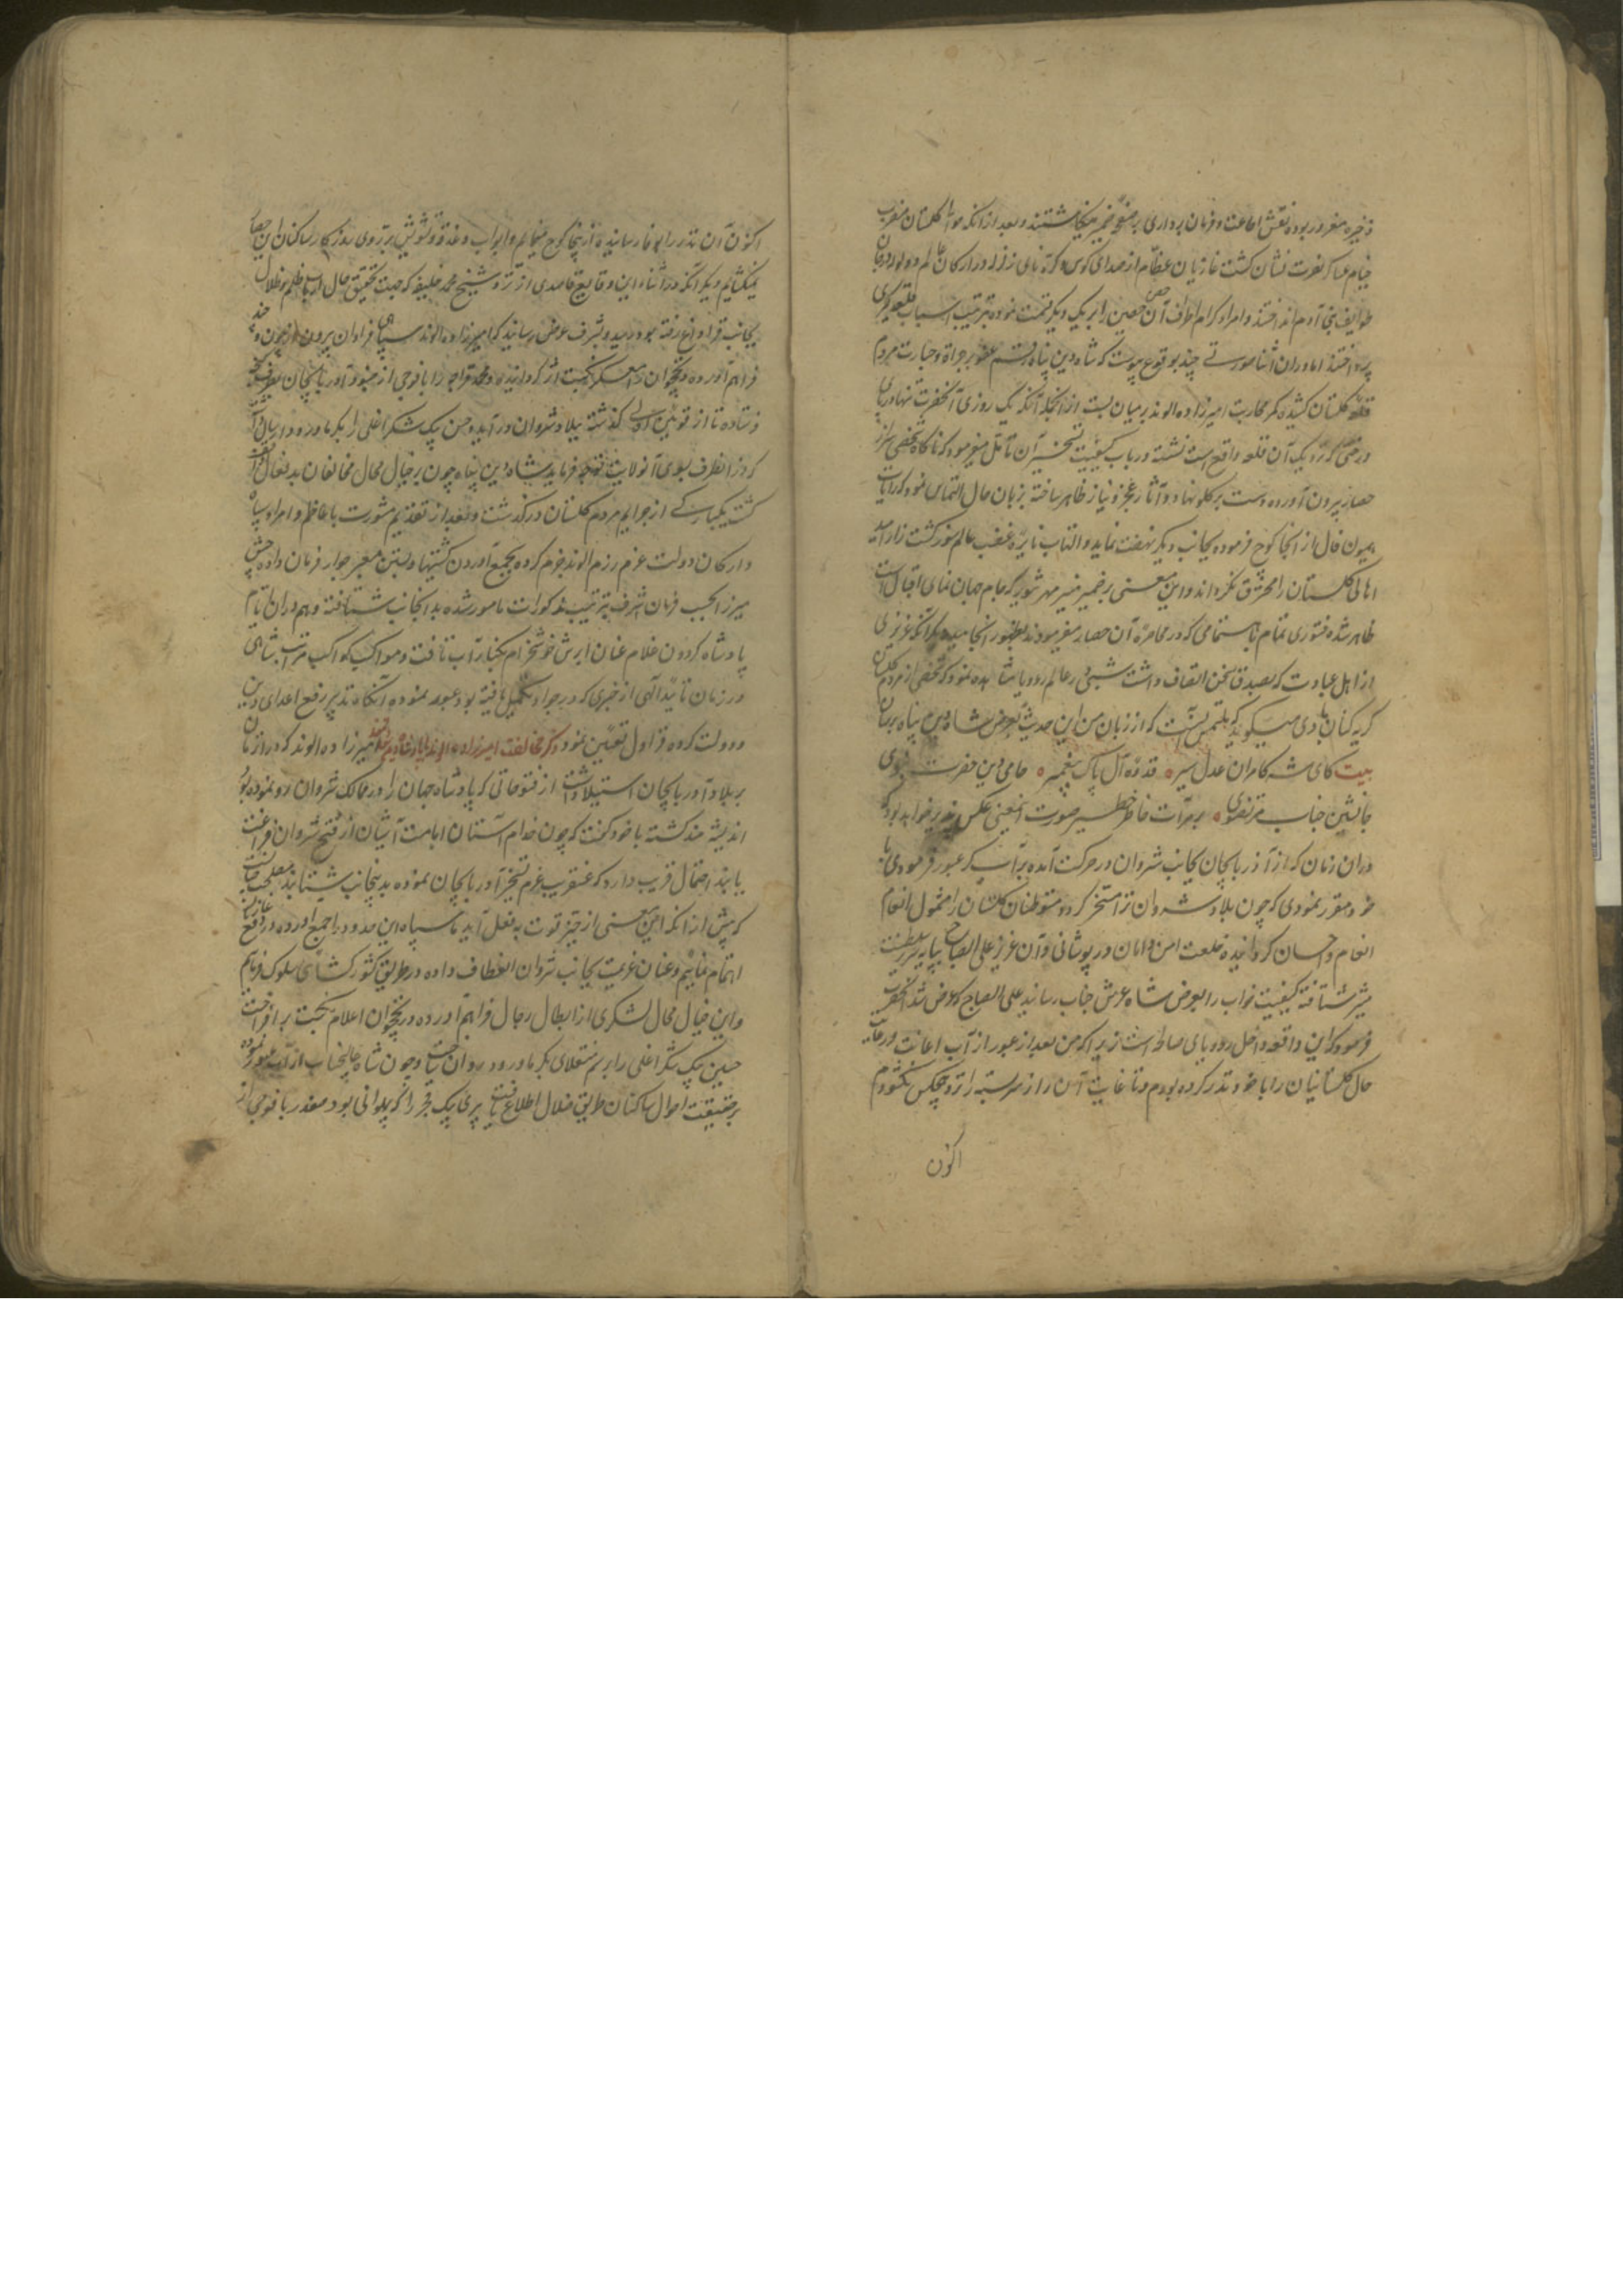 ذخیره مغرور بوده نقش اطاعت و فرمان برداری بر صفحه ضمیر مینکاشتند و بعد از انکه حوالی کلستان مضرب
خیام عساکر نصرت نشان کشت غازیان عظام از صدای کوس و کره نای زلزله در ارکان عالم و ولوله در جان
طوایف بنی آدم انداختند و امراء کرام اطراف آن حصن حصین را بر یک دیکر قسمت نموده بترتیب اسباب قلعه کیری
پرداختند اما در ان اثنا صورتی چند بوقوع پیوست که شاه دین پناه رقم عفو بر جراة و جسارت مردم
قلعه کلستان کشیده کمر محاربت امیرزاده الوند بر میان بست از انجمله آنکه یک روزی آنحضرت تنها در پای
درختی که نزدیک آن قلعه واقع است نشسته در باب کیفیت تسخیر آن تأمل میفرمود که ناکاه شخصی سر از
حصار بیرون آورده دست بر کلو نهاد و آثار عجز و نیاز ظاهر ساخته بزبان حال التماس نمود که رایات
همیون فال از انجا کوچ فرموده بجانب دیکر نهضت نماید و التهاب نایره غضب عالم سوز کشت زار امید
اهالی کلستان را محترق نکرداند و این معنی بر ضمیر منیر مهر تنویر که جام جهان نمای اقبال است
ظاهر شده فتوری تمام باهتمامی که در محاصره آن حصار میفرمودند بظهور انجامید دیکر آنکه عزیزی
از اهل عبادت که بصدق سخن اتصاف داشت شبی در عالم رویا مشاهده نمود که شخصی از مردم کلستان
کریه کنان با وی میکوید که ملتمس آنست که از زبان من این حدیث بعرض شاه دین پناه برسان
بیت کای شه کامران عدل سیر ۰ قدوه آل پاک پیغمبر ۰ حامی دین حضرت نبوی
جانشین جناب مرتضوی ۰ بر مرآت خاطر خطیر صورت اینمعنی عکس پذیر خواهد بود که
در ان زمان که از آذربایجان بجانب شروان در حرکت آمده بر آب کر عبور فرمودی با
خود مقرر نمودی که چون بلاد شروان ترا مسخر کردد متوطنان کلستان را مشمول انعام
انعام و احسان کردانیده خلعت امن و امان در پوشانی و آن عزیز علی الصباح بپایه سریر سلطنت
مصیر شتافته کیفیت خواب را بعرض شاه عرش جناب رسانید علی الصباح که عرض شد آنحضرت
فرمود که این واقعه داخل رویای صالحه است زیرا که من بعد از عبور از آب اعانت و رعایت
حال کلستانیان را با خود نذر کرده بودم و تا غایت آن راز سربسته را نزد هیچکس نکشودم
اکنون
اکنون آن نذر را بوفا رسانیده از اینجا کوچ مینمایم و ابواب دغدغه و تشویش بر روی روزکار ساکنان این حصار
نمیکشایم دیکر آنکه در اثناء این وقایع قاصدی از نزد شیخ محمد خلیفه که جهت تحقیق حال ارباب ظلم و ضلال
بجانب قراباغ رفته بود رسید و بشرف عرض رسانید که امیرزاده الوند سپاهی فراوان بیرون از چون و چند
فراهم آورده نخچوان را معسکر نکبت اثر کردانیده و محمد قراجه را با فوجی از جنود آذربایجان بطرف کنجه
فرستاده تا از قوئین اولمی کذشته ببلاد شروان در آید و حسن بیک شکر اغلی را بکر ماورود ارسال
کرد از انطرف بسوی آن ولایت توجه فرماید شاه دین پناه چون بر خیال محال مخالفان بد فعال آکاه
کشت یکبارکی از جرایم مردم کلستان در کذشت و بعد از تقدیم مشورت با اعاظم و امراء سپاه
و ارکان دولت عزم رزم الوند جزم کرده بجمع آوردن کشتیها و بستن جسر معبر جواد فرمان داده جوشن
میرزا بحسب فرمان اشرف بترتیب مذکورات مامور شده بدانجانب شتافته و هم در ان ایام
پادشاه کردون غلام عنان ابرش خوشخرام بکنار آب تافت و مواکب کواکب مراتب شاهی
در زمان تایید الهی از جسری که در جواد تکمیل یافته بود عبور نموده آنکاه تدبیر رفع اعدای دین
و دولت کرده قراول تعیین نمود ذکر مخالفت امیرزاده الوند با پادشاه امیرزاده الوند که در ان زمان
بر بلاد آذربایجان استیلا داشت از فتوحاتی که پادشاه جهان را در ممالک شروان رو نموده بود
اندیشه مند کشته با خود کفت که چون خدام آستان امامت آشیان از فتح شروان فراغت
یابند احتمال قریب دارد که عنقریب عزم تسخیر آذربایجان نموده بدینجانب شتابند مصلحت آنست
که پیش از انکه این معنی از حیز قوت بفعل آید ما سپاه این حدود را جمع آورده در دفع
اهتمام نماییم و عنان عزیمت بجانب شروان انعطاف داده در طریق کشور کشائی سلوک فرماییم
و این خیال محال لشکری از ابطال رجال فراهم آورده در نخچوان اعلام نکبت بر افراخت
حسن بیک شکر اغلی را برسم منقلای بکر ماورود روان ساخت و چون شاه عالیجناب از آب عبور نموده
بر حقیقت احوال ساکنان طریق ضلال اطلاع یافت پیری بیک قجر را که پهلوانی بود صفدر با فوجی از